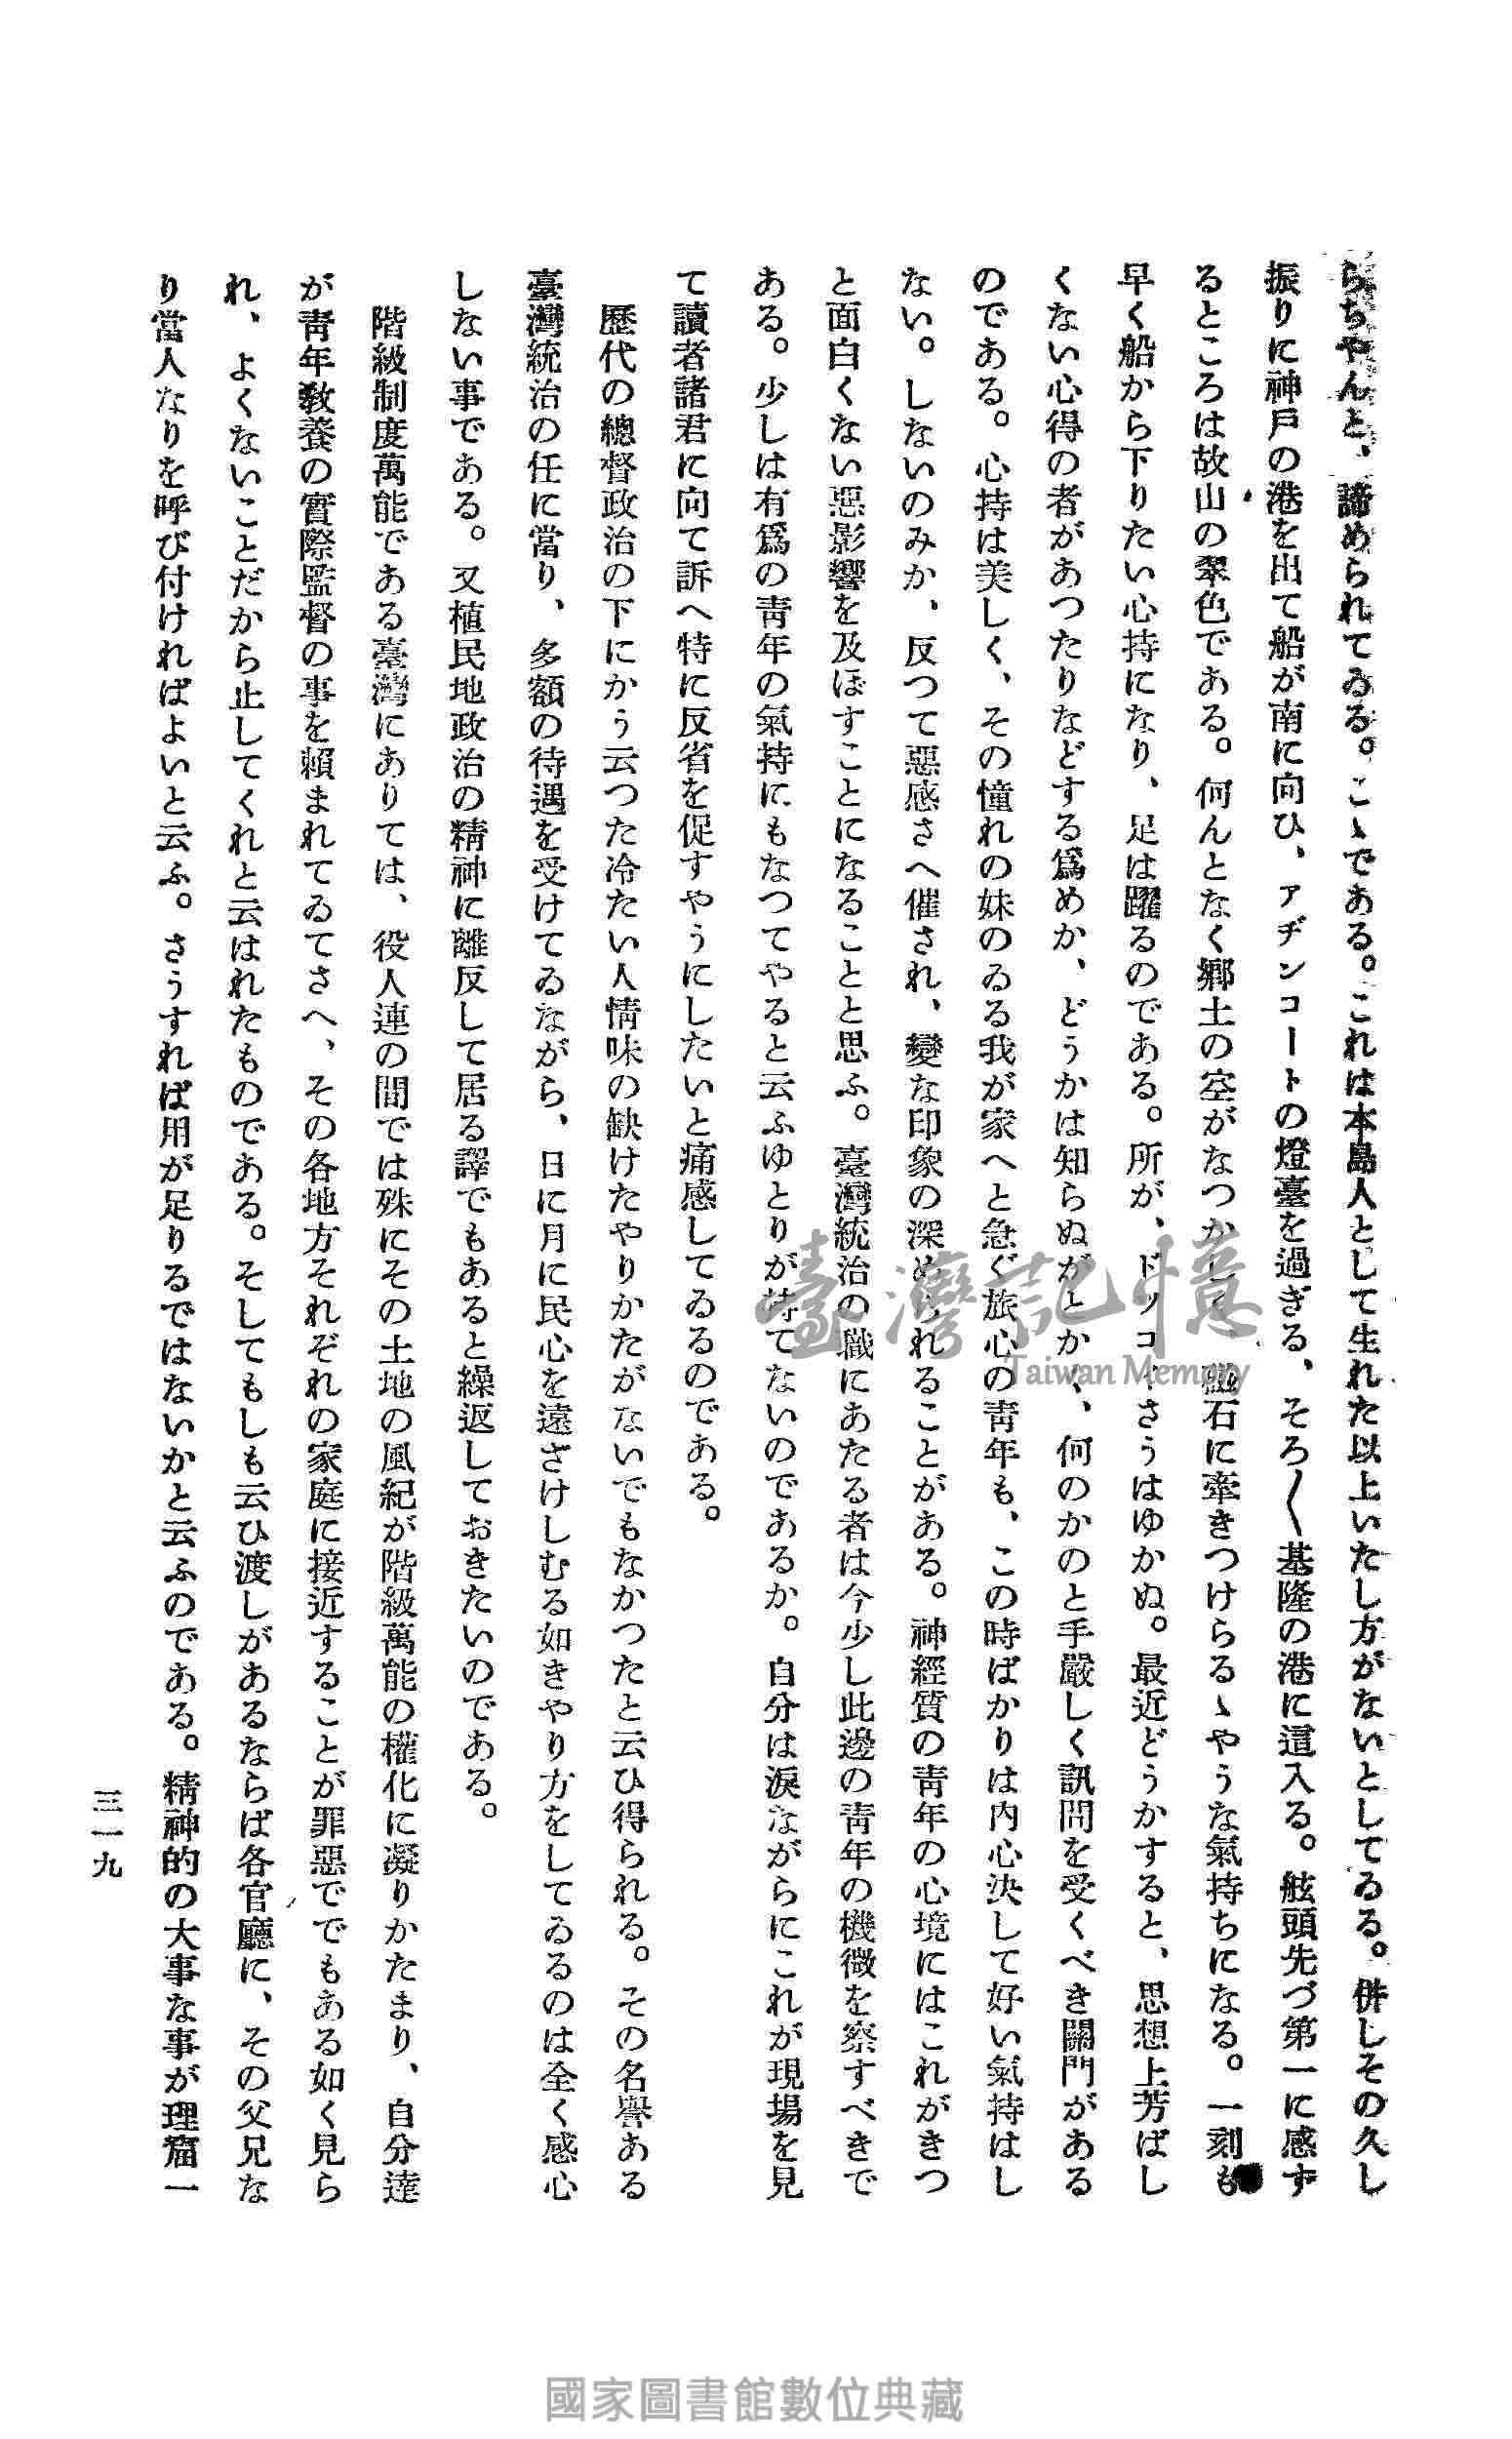 らちやんと、諦められてゐる。こゝである。これは本島人として生れた以上いたし方がないとしてゐる。併しその久し
振りに神戶の港を出て船が南に向ひ、アヂンコートの燈臺を過ぎる、そろ〱基隆の港に這入る。舷頭先づ第一に感ず
るところは故山の翠色である。何んとなく鄕土の空がなつかしく、磁石に牽きつけらるゝやうな氣持ちになる。一刻も
早く船から下りたい心持になり、足は躍るのである。所が、ドツコイさうはゆかぬ。最近どうかすると、思想上芳ばし
くない心得の者があつたりなどする爲めか、どうかは知らぬがとかく、何のかのと手嚴しく訊問を受くべき關門がある
のである。心持は美しく、その憧れの妹のゐる我が家へと急ぐ旅心の靑年も、この時ばかりは內心決して好い氣持はし
ない。しないのみか、反つて惡感さへ催され、變な印象の深められることがある。神經質の靑年の心境にはこれがきつ
と面白くない惡影響を及ぼすことになることと思ふ。臺灣統治の職にあたる者は今少し此邊の靑年の機微を察すべきで
ある。少しは有爲の靑年の氣持にもなつてやると云ふゆとりが持てないのであるか。自分は淚ながらにこれが現場を見
て讀者諸君に向て訴へ特に反省を促すやうにしたいと痛感してゐるのである。
歷代の總督政治の下にかう云つた冷たい人情味の缺けたやりかたがないでもなかつたと云ひ得られる。その名譽ある
臺灣統治の任に當り、多額の待遇を受けてゐながら、日に月に民心を遠ざけしむる如きやり方をしてゐるのは全く感心
しない事である。又植民地政治の精神に離反して居る譯でもあると繰返しておきたいのである。
階級制度萬能である臺灣にありては、役人連の間では殊にその土地の風紀が階級萬能の權化に凝りかたまり、自分達
が靑年敎養の實際監督の事を賴まれてゐてさへ、その各地方それぞれの家庭に接近することが罪惡ででもある如く見ら
れ、よくないことだから止してくれと云はれたものである。そしてもしも云ひ渡しがあるならば各官廳に、その父兄な
り當人なりを呼び付ければよいと云ふ。さうすれば用が足りるではないかと云ふのである。精神的の大事な事が理窟一
三一九
臺灣記憶
Taiwan Memory
國家圖書館數位典藏